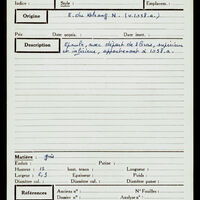 Indice : Style : Emplacem. :
Origine E. du N. (v. 1058.a.)
Prix Date acquis. : Date insert. :
Description avec départ de 2 bras, supérieur
et inférieur, appartenant à 1058.a.
Matière : grès
Enduit : Patine :
Hauteur : 13 haut. vraie : Longueur :
Largeur : 6,5 Epaisseur : Poids :
Diamètre col. : Diamètre panse :
Références Anciens n° : N° Fouilles :
Dossier n° : Analyse n° :